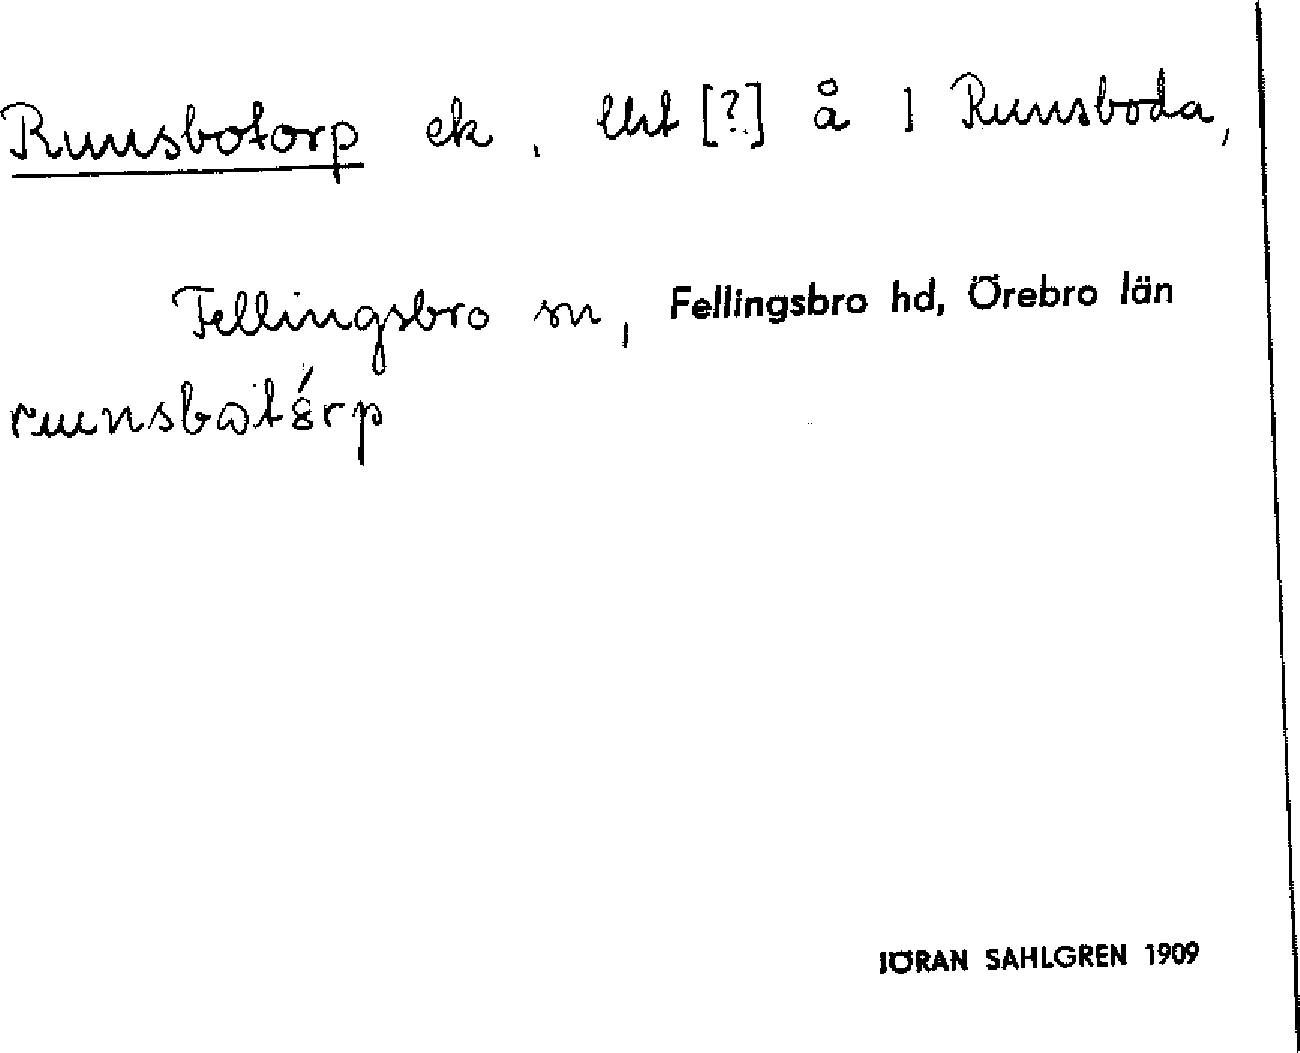 Runsbotorp ek, lht [?] å 1 Runsboda,
Fellingsbro sn, Fellingsbro hd, Örebro län
JÖRAN SAHLGREN 1909